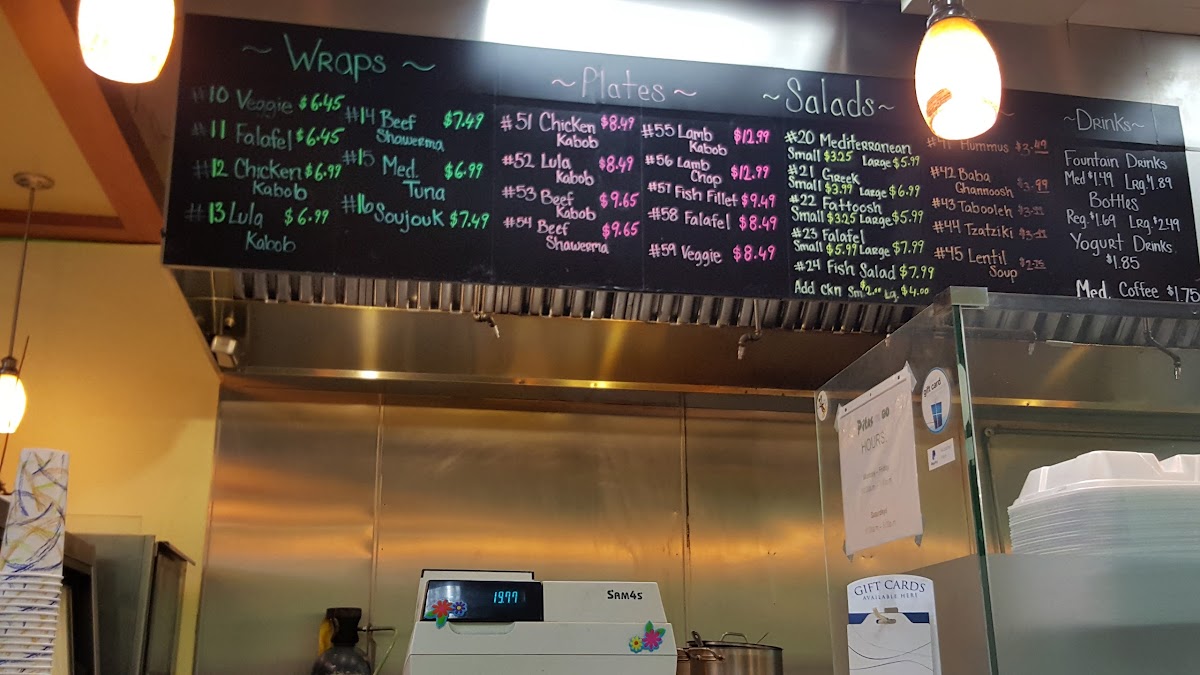 ~ Wraps ~
#10 Veggie $6.45
#11 Falafel $6.45
#12 Chicken $6.99
Kabob
#13 Lula $6.99
Kabob
#14 Beef $7.49
Shawerma
#15 Med. $6.99
Tuna
#16 Soujouk $7.49
~ Plates ~
#51 Chicken $8.49
Kabob
#52 Lula $8.49
Kabob
#53 Beef $9.65
Kabob
#54 Beef $9.65
Shawerma
#55 Lamb $12.99
Kabob
#56 Lamb $12.99
Chop
#57 Fish Fillet $9.49
#58 Falafel $8.49
#59 Veggie $8.49
~ Salads ~
#20 Mediterranean
Small $3.25 Large $5.99
#21 Greek
Small $3.99 Large $6.99
#22 Fattoosh
Small $3.25 Large $5.99
#23 Falafel
Small $5.99 Large $7.99
#24 Fish Salad $7.99
Add Ckn Sm. $2.00 Lg. $4.00
#41 Hummus $3.49
#42 Baba $3.99
Ghannoosh
#43 Tabooleh
#44 Tzatziki
#45 Lentil
Soup
~ Drinks ~
Fountain Drinks
Med $1.49 Lrg. $1.89
Bottles
Reg. $1.69 Lrg $2.49
Yogurt Drinks
$1.85
Med. Coffee $1.75
gift card
Pitas DO
HOURS
GIFT CARDS
AVAILABLE HERE
19.77
SAM4S